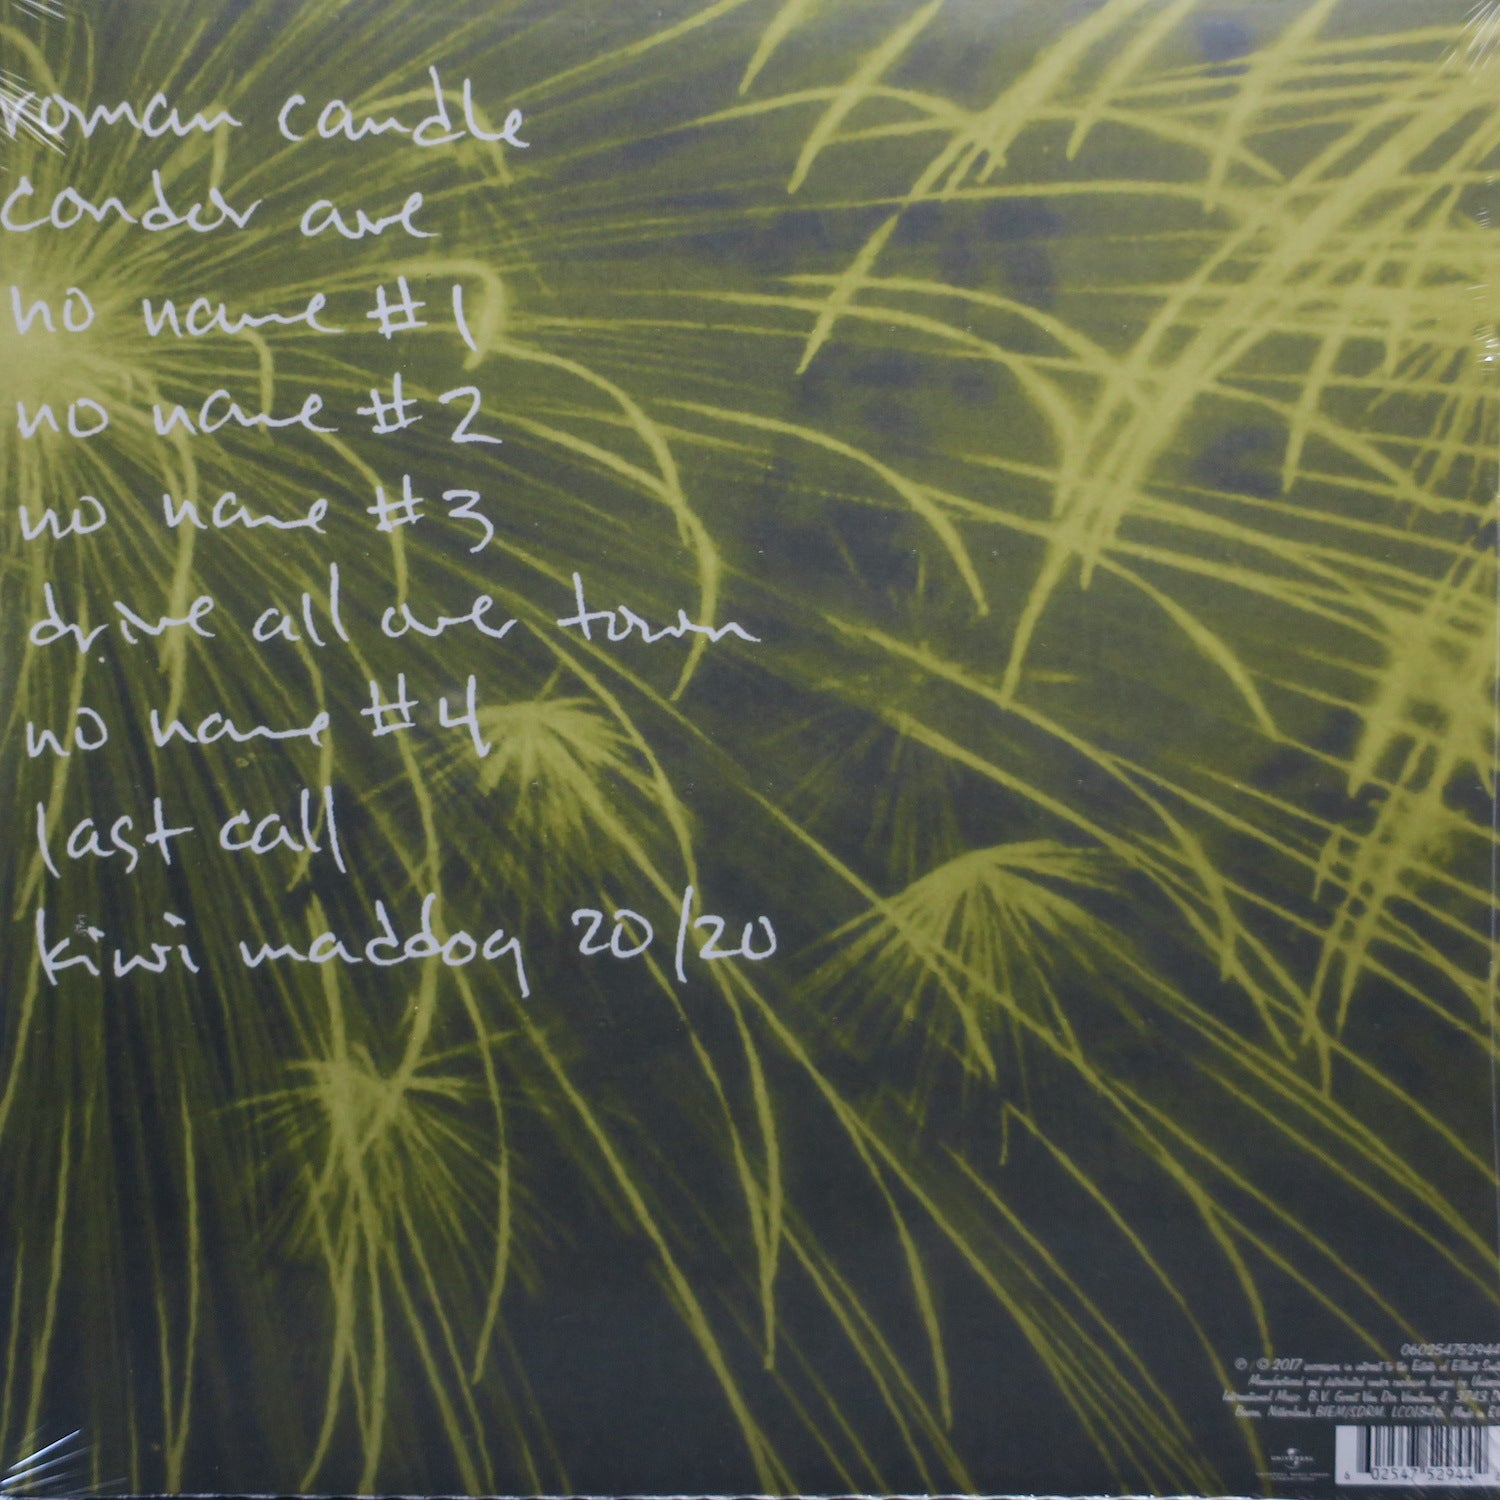 roman candle
condor ave
no name #1
no name #2
no name #3
drive all over town
no name #4
last call
kiwi maddog 20/20
060254752944
℗ / © 2017 in interest to the Estate of Elliott
Manufactured and distributed under exclusive license by
International Music B.V. Gerrit Van Der 4, 3743
Baarn, Netherlands. BIEM/SDRM. LC01846. Made in
UNIVERSAL
6 02547 52944